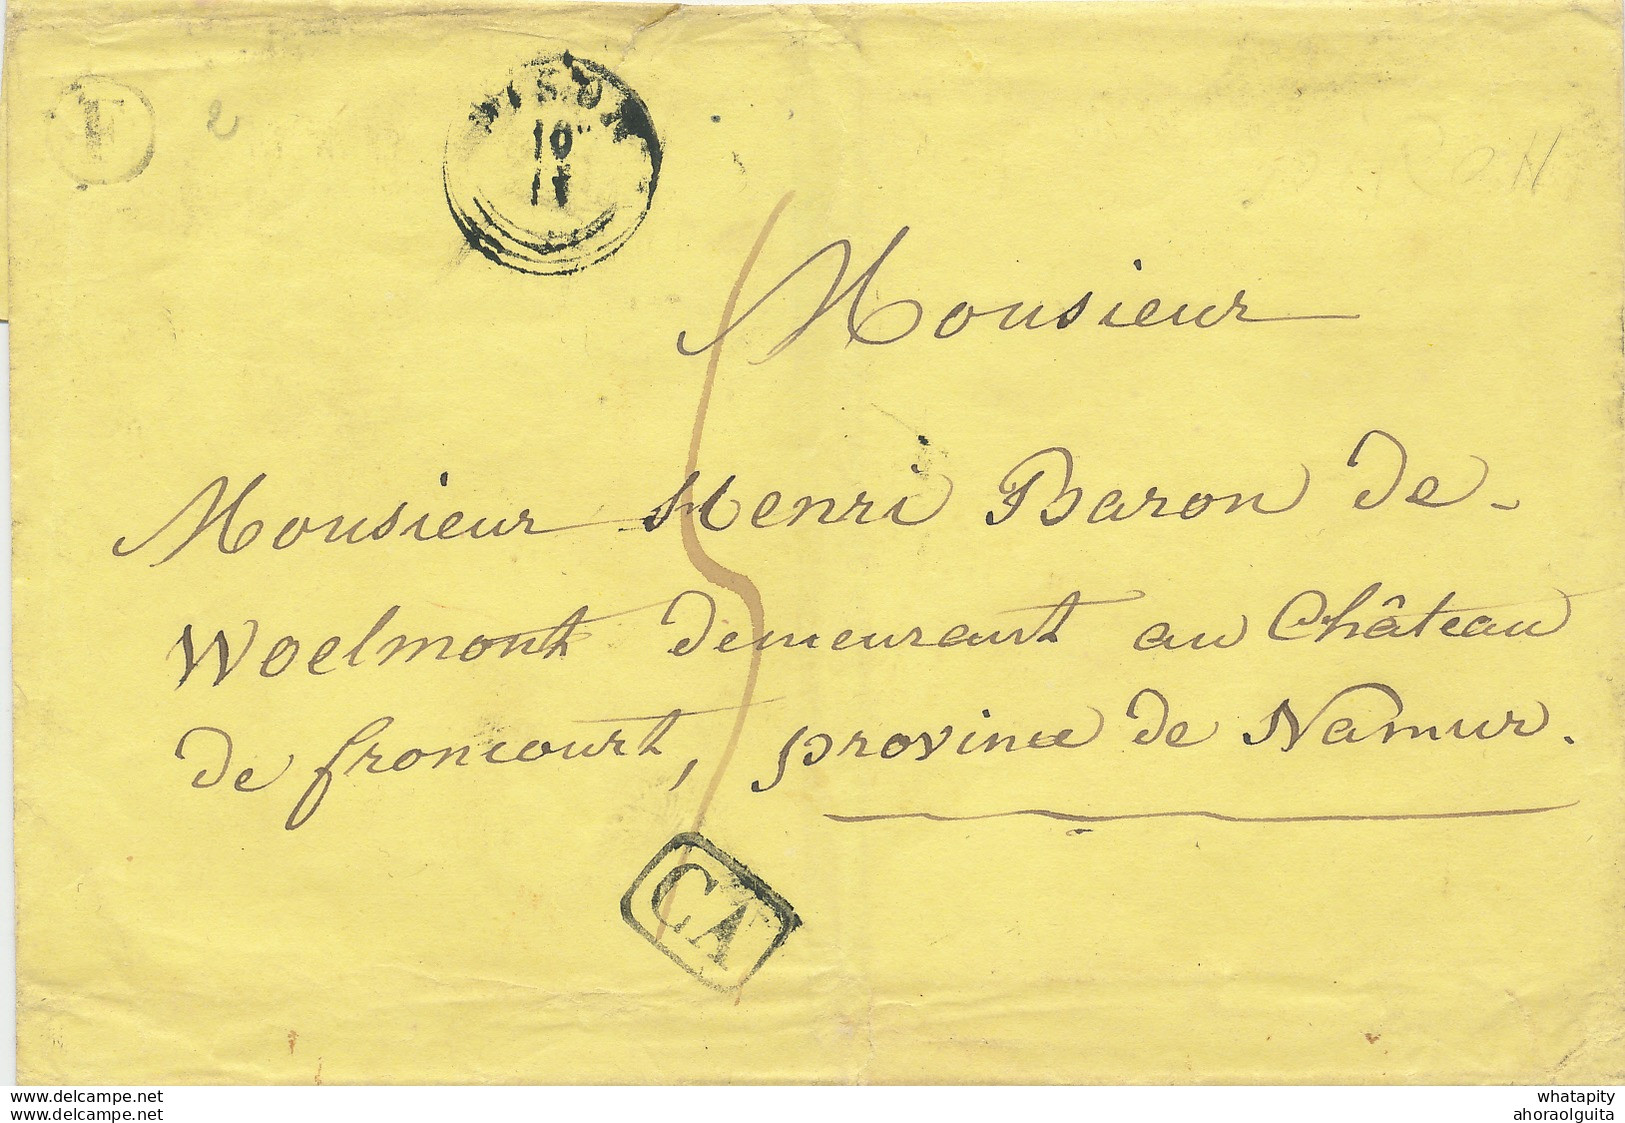 F
2
10
11
Monsieur
Monsieur Henri Baron de-
Woelmont demeurant au Château
de froncourt, province de Namur.
CA
Delcampe.net
Delcampe.net
whatapity
ahoraolguita